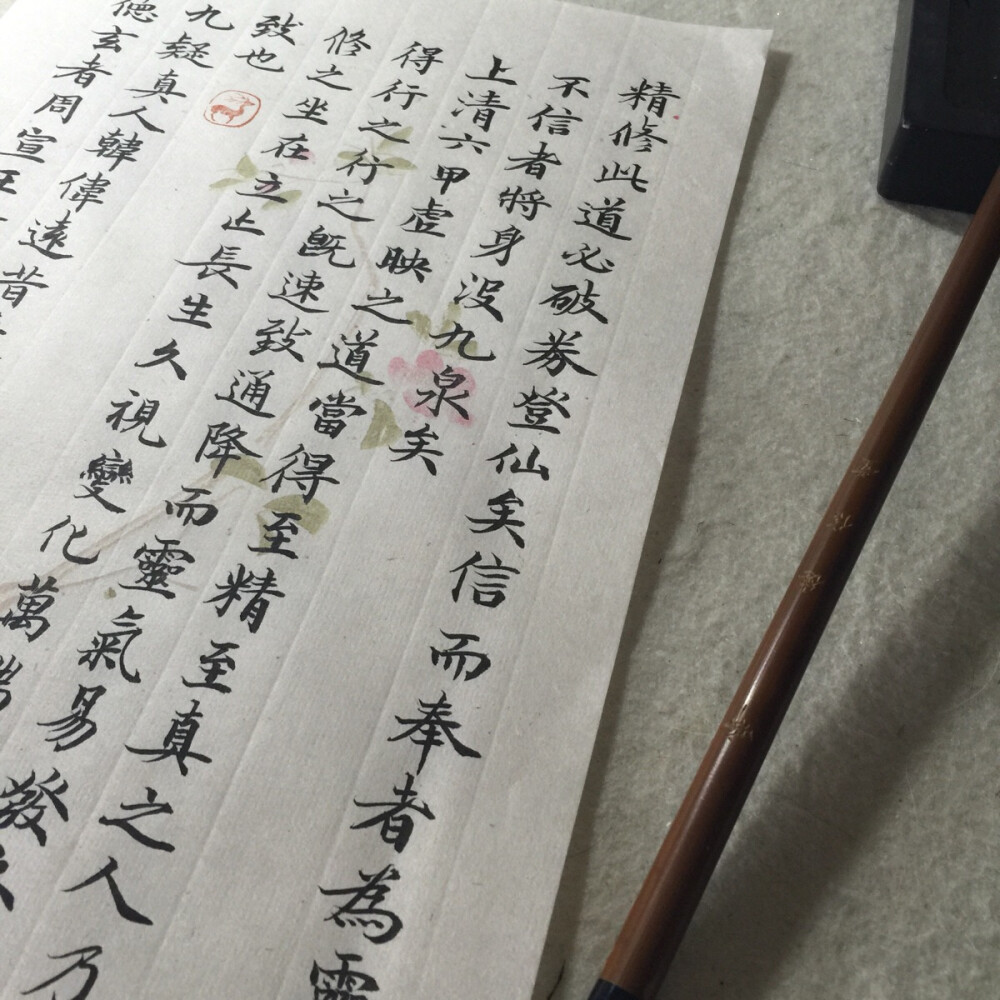 精修此道必破券登仙矣信而奉者為靈
不信者將身没九泉矣
上清六甲虚映之道當得至精至真之人乃
得行之行之既速致通降而靈氣易發
修之坐在立亡長生久視變化萬端
致也
九疑真人韓偉遠昔
德玄者周宣王